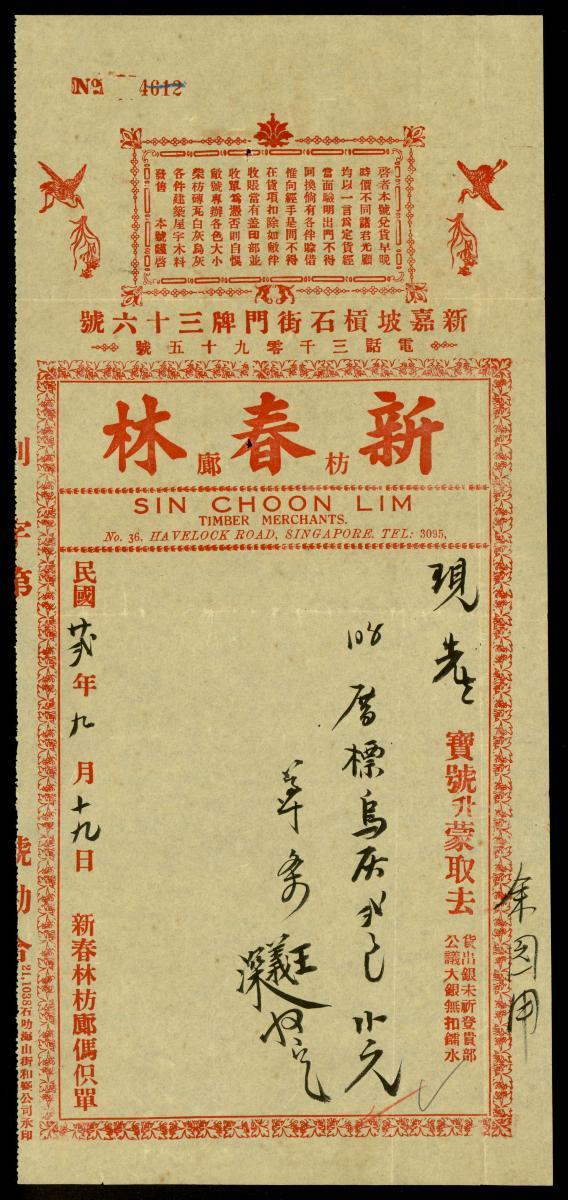 No. 4612
啓者本號兌貨早晚
時價不同諸君光顧
均以一言爲定貨經
當面驗明出門不得
回換倘有各伴賒借
惟向經手是問不得
在貨項扣除如敝伴
收賬當有盖印部並
收單爲憑否則自悞
敝號專辦各色大小
柴枋磚瓦白灰烏灰
各件建築屋宇木料
發售 本號謹啓
新嘉坡槓石街門牌三十六號
電話三千零九十五號
新春林
枋廊
SIN CHOON LIM
TIMBER MERCHANTS.
No. 36, HAVELOCK ROAD, SINGAPORE. TEL: 3095,
現
寶號升蒙取去
貨出銀未祈登貴部
公議大銀無扣鐳水
厝標烏灰
元
民國廿弍年九月十九日 新春林枋廊傌伿單
字第
號
21,1038石叻海山街和發公司承印